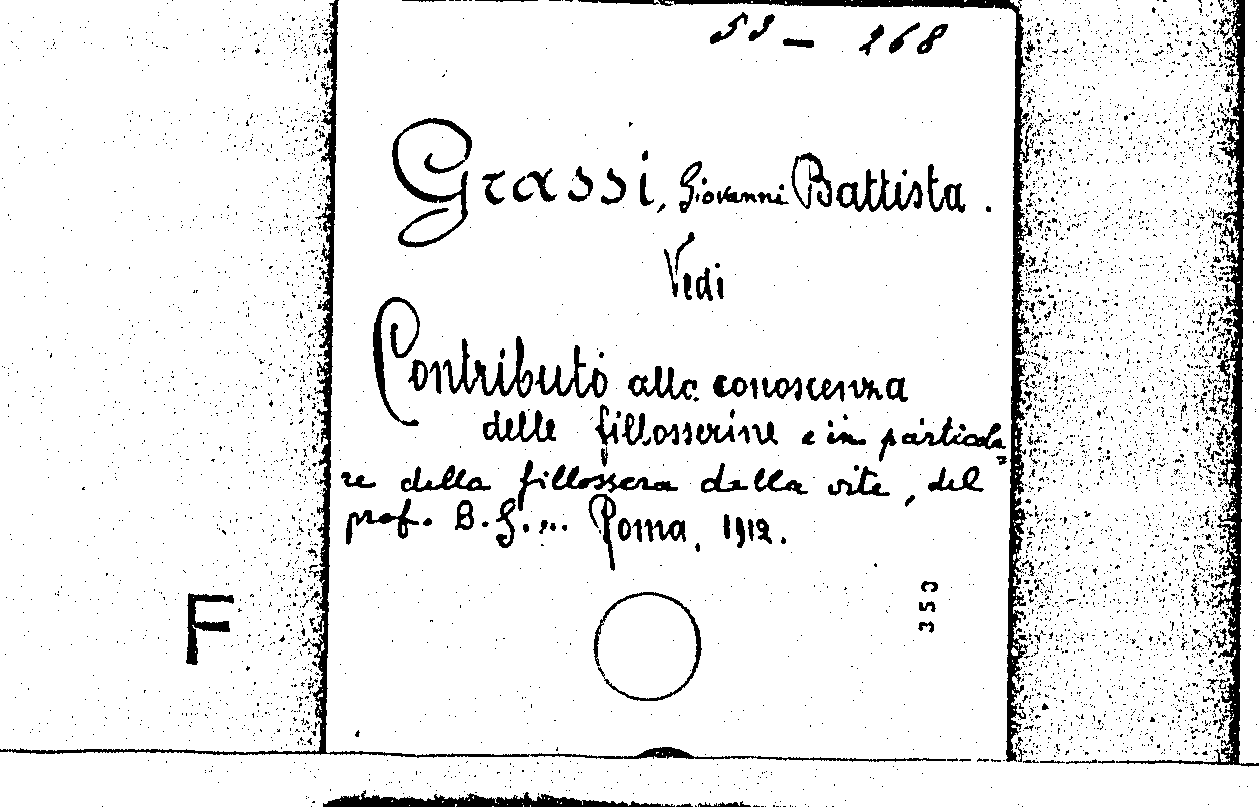 53 - 268
Grassi, Giovanni Battista.
Vedi
Contributo alla conoscenza
delle fillosserine e in particola=
re della fillossera della vite, del
prof. B. G.... Roma, 1912.
F
350